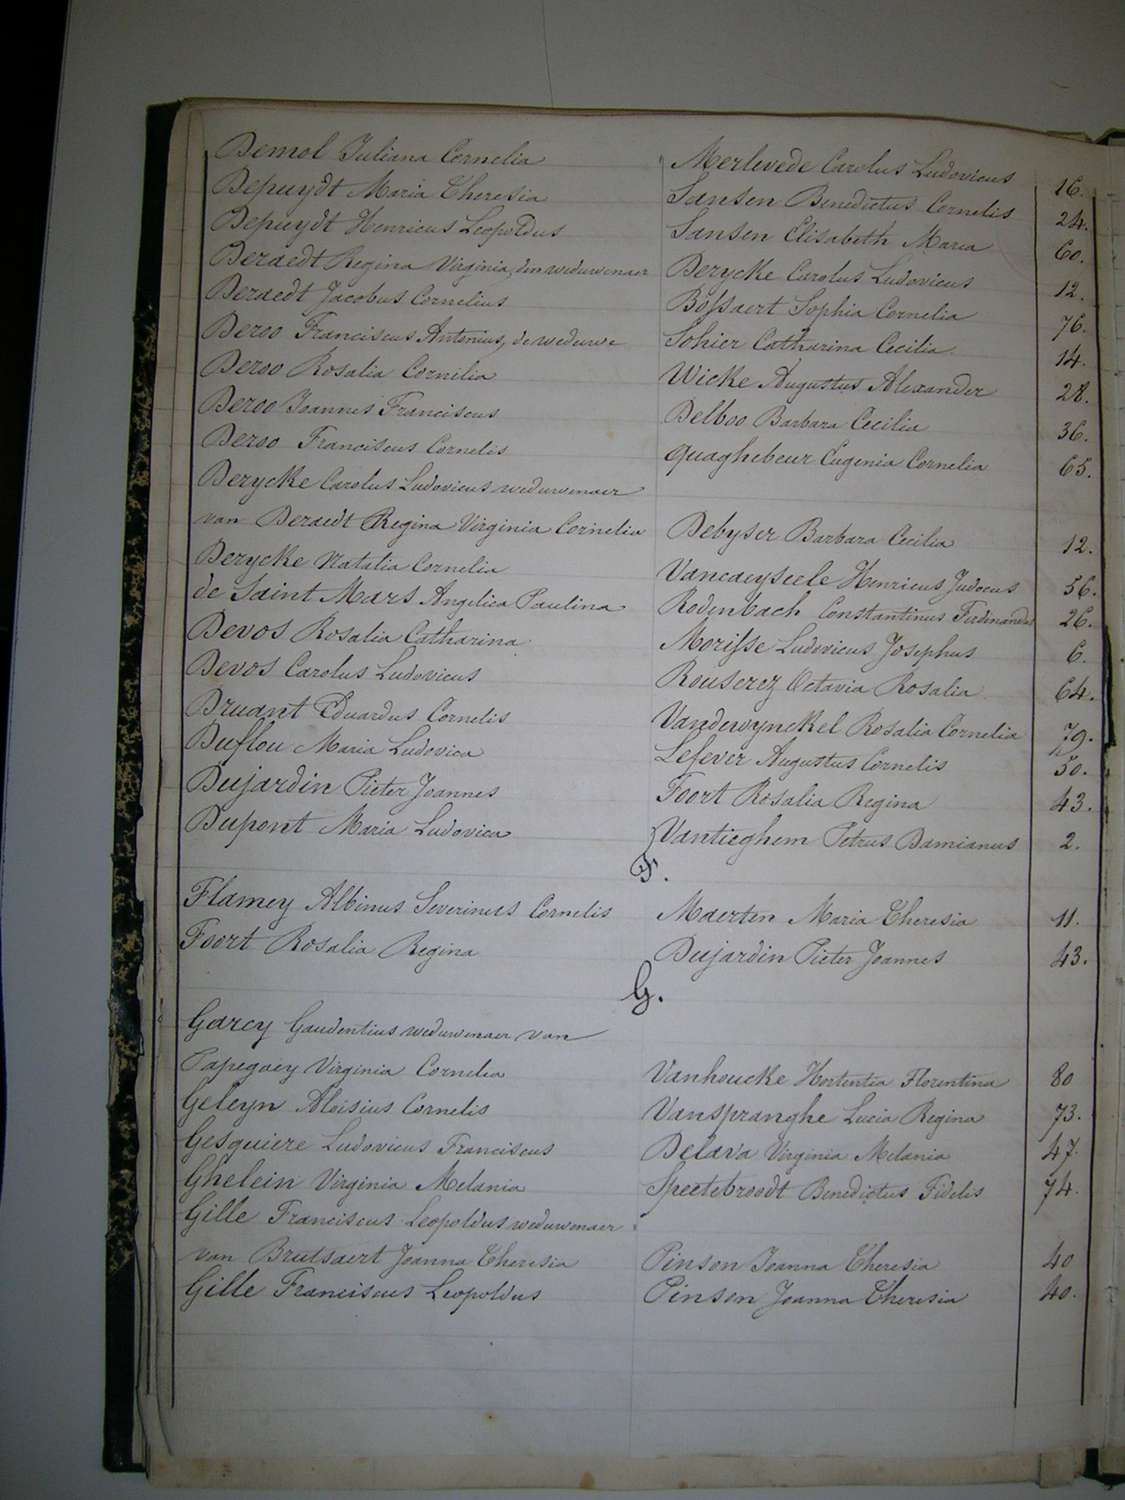 Demol Juliana Cornelia Merlevede Carolus Ludovicus 16.
Depuydt Maria Theresia Sansen Benedictus Cornelis 24.
Depuydt Henricus Leopoldus Sansen Elisabeth Maria 60.
Deraedt Regina Virginia, den weduwenaer Derycke Carolus Ludovicus 12.
Deraedt Jacobus Cornelius Bossaert Sophia Cornelia 76.
Deroo Franciscus Antonius, de weduwe Sohier Catharina Cecilia 14.
Deroo Rosalia Cornilia Wicke Augustus Alexander 28.
Deroo Joannes Franciscus Delboo Barbara Cecilia 36.
Deroo Franciscus Cornelis Quaghebeur Eugenia Cornelia 65.
Derycke Carolus Ludovicus weduwenaer
van Deraedt Regina Virginia Cornelia Debyser Barbara Cecilia 12.
Derycke Natalia Cornelia Vancaeyseele Henricus Judocus 56.
de Saint Mars Angelica Paulina Rodenbach Constantinus Ferdinandus 26.
Devos Rosalia Catharina Morisse Ludovicus Josephus 6.
Devos Carolus Ludovicus Rouserez Octavia Rosalia 64.
Bruant Eduardus Cornelis Vandewynckel Rosalia Cornelia 79.
Duflou Maria Ludovica Lefever Augustus Cornelis 50.
Dujardin Pieter Joannes Foort Rosalia Regina 43.
Dupont Maria Ludovica Vantieghem Petrus Damianus 2.
F.
Flamey Albinus Severinus Cornelis Maerten Maria Theresia 11.
Foort Rosalia Regina Dujardin Pieter Joannes 43.
G.
Garcy Gaudentius weduwenaer van
Papegaey Virginia Cornelia Vanhoucke Hortentia Florentina 80
Geleyn Aloisius Cornelis Vanspranghe Lucia Regina 73.
Gesquiere Ludovicus Franciscus Delava Virginia Melania 47.
Ghelein Virginia Melania Spectebroodt Benedictus Fidelis 74.
Gille Franciscus Leopoldus weduwenaer
van Brutsaert Joanna Theresia Pinson Joanna Theresia 40
Gille Franciscus Leopoldus Pinson Joanna Theresia 40.